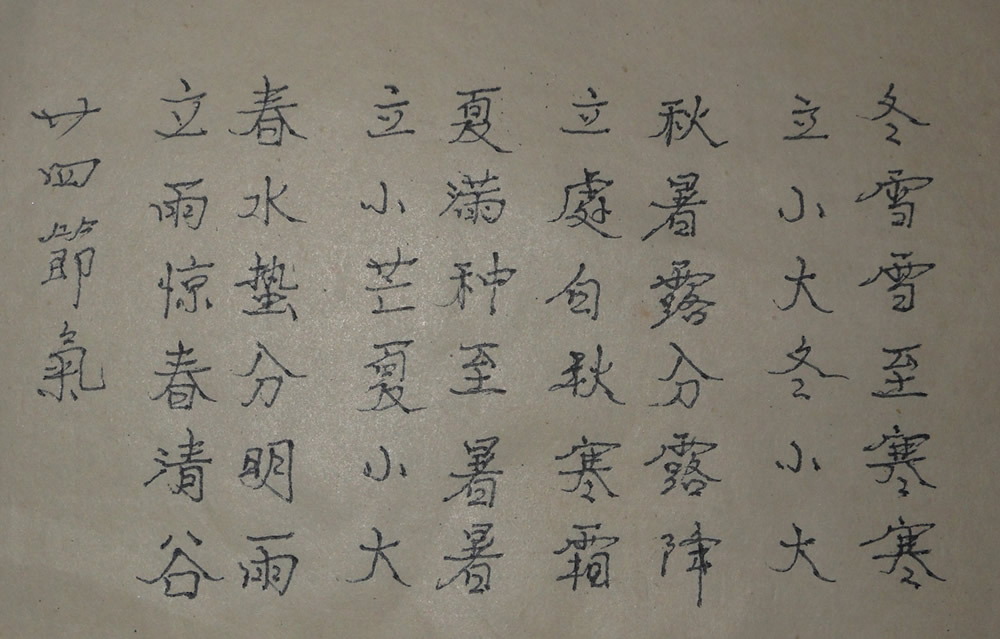 廿四節氣
立春
雨水
惊蛰
春分
清明
谷雨
立夏
小满
芒种
夏至
小暑
大暑
立秋
處暑
白露
秋分
寒露
霜降
立冬
小雪
大雪
冬至
小寒
大寒